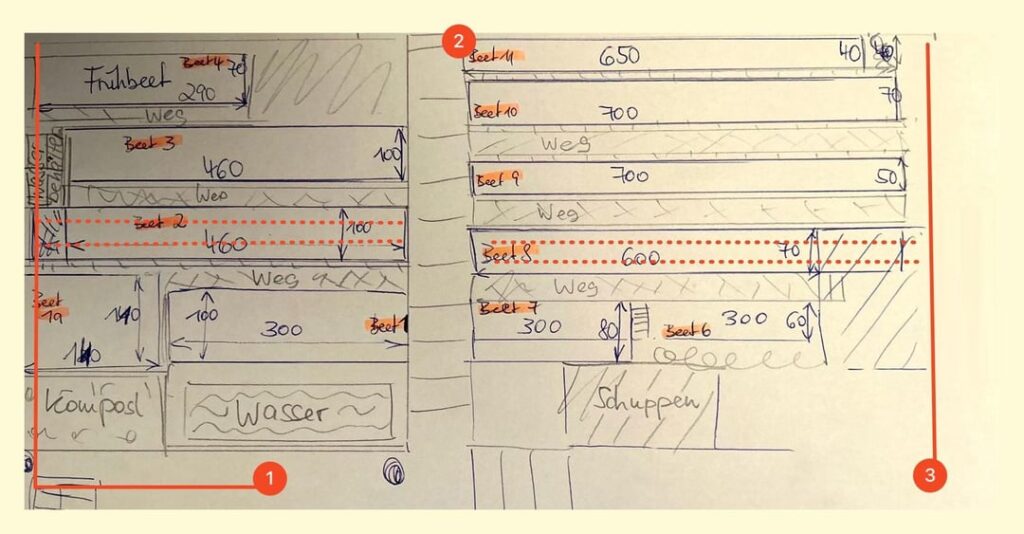 Beet 4
70
Frühbeet
290
Weg
Beet 3
100
460
Weg
Beet 2
100
460
Weg
Beet 1a
140
140
100
300
Beet 1
Kompost
Wasser
1
2
Beet 11
650
40
Beet 10
700
70
Weg
Beet 9
700
50
Weg
Beet 8
600
70
Weg
Beet 7
300
80
Beet 6
300
60
Schuppen
3